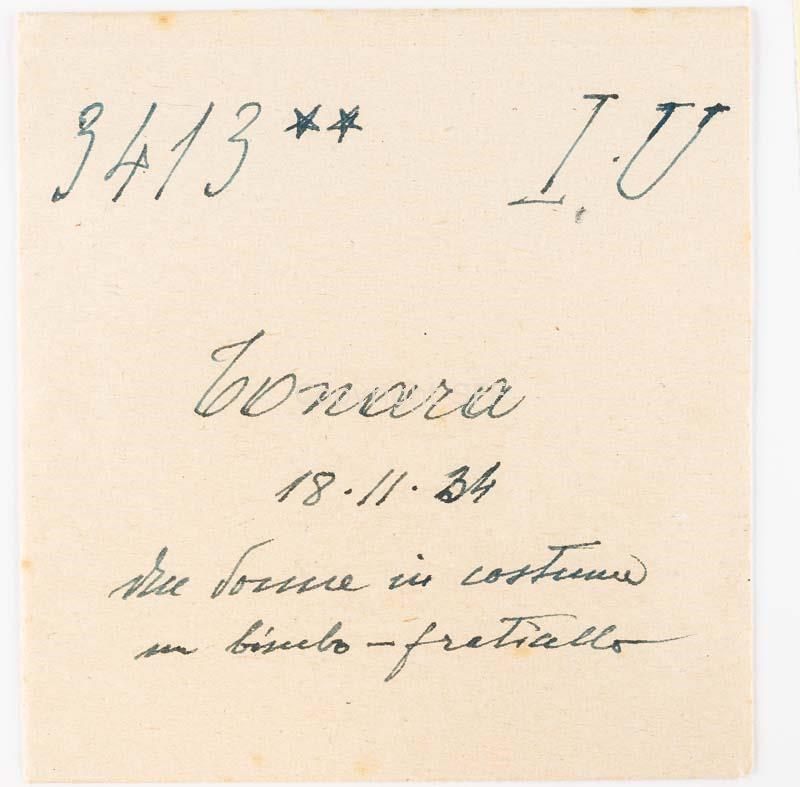 3413** I.U
Tonara
18.11.34
due donne in costume
un bimbo - fraticello